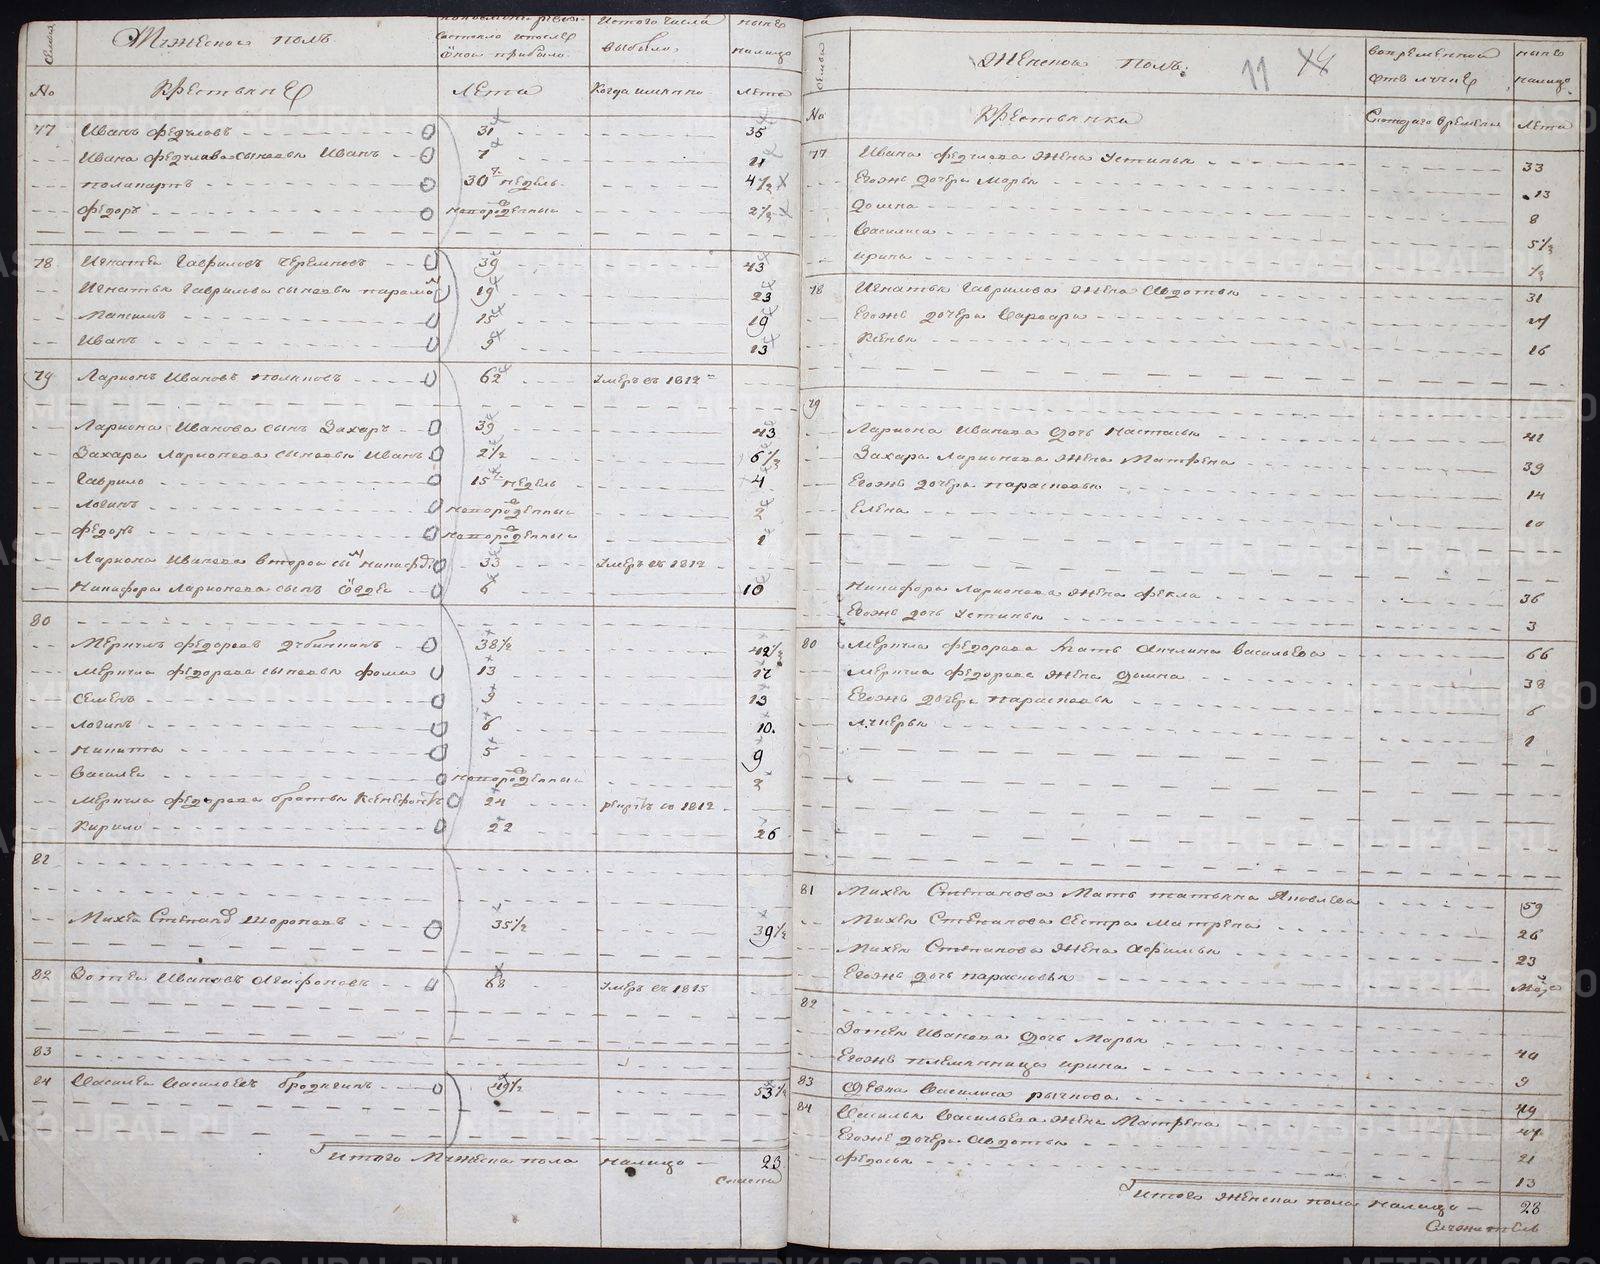 Мужеской полъ
по последней ревизiи состояло и после оной прибыло
Изтого числа выбыло
ныне налицо
No Крестьяне
Лета
Когда имянно
Лета
77 Иванъ федуловъ 31 35
Ивана федулова сыновья Иванъ 7 11
поликарпъ 30 недель 4 1/2
федоръ новорожденный 2 1/2
78 Игнатей Гавриловъ Черемновъ 39 43
Игнатья Гаврилова сыновья парамонъ 19 23
Максимъ 15 19
Иванъ 9 13
79 Ларионъ Ивановъ 62 умеръ въ 1812
Лариона Иванова сынъ Захаръ 39 43
Захара Ларионова сыновья Иванъ 2 1/2 6 1/2
Гаврило 15 недель 4
Логинъ новорожденный 2
федоръ новорожденный 1
Лариона Иванова второй сынъ никифоръ 33 умеръ въ 1812
Никифора Ларионова сынъ 6 10
80
Меркулъ федоровъ дубининъ 38 1/2 42 1/2
Меркула федорова сыновья фома 13 17
Семенъ 9 13
Логинъ 6 10
Никита 5 9
Василей новорожденный 2
Меркула федорова братья Ксенофонтъ 24 рекрутъ въ 1812
Кирило 22 26
81
Михей Степановъ 35 1/2 39 1/2
82 Зотей Ивановъ Агафоновъ 68 умеръ въ 1815
83
84 Василей Васильевъ бродягинъ 49 1/2 53 1/2
Итого Мужеска пола налицо 23
11
Женской полъ
во временной отлучке
ныне налицо
No Крестьянки
Скотораго времяни
Лета
77 Ивана федулова жена устинья 33
Егоже дочери Марья 13
домна 8
Василиса 5 1/2
ирина 1/2
78 Игнатья Гаврилова жена Авдотья 31
Егоже дочери Варвара
Ксенья 16
79
Лариона Иванова дочь настасья 41
Захара Ларионова жена Матрена 39
Егоже дочери парасковья 14
Елена 10
Никифора Ларионова жена фекла 36
Егоже дочь Устинья 3
80 Меркула федорова мать Акилина Васильева 66
Меркула федорова жена домна 38
Егоже дочери парасковья 6
Лукерья 1
81 Михея Степанова Мать татьяна Яковлева 59
Михея Степанова сестра матрена 26
Михея Степанова жена Афимья 23
Егоже дочь парасковья
82
Зотея Иванова дочь Марья 40
Егоже племянница ирина 9
83 девка Василиса рычкова 49
84 Василья Васильева жена Матрена 47
Егоже дочери Авдотья 21
федосья 13
Итого женска пола налицо 28